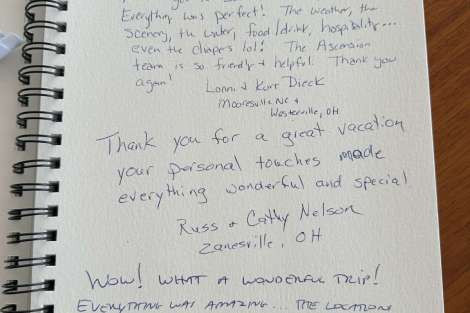 Everything was perfect! The weather, the
scenery, the water, food/drink, hospitality...
even the chapers lol! The Ascension
team is so friendly & helpful. Thank you
again!
Lonni & Kurt Dieck
Mooresville, NC &
Westerville, OH
Thank you for a great vacation
your personal touches made
everything wonderful and special
Russ & Cathy Nelson
Zanesville, OH
WOW! WHAT A WONDERFUL TRIP!
EVERYTHING WAS AMAZING... THE LOCATION